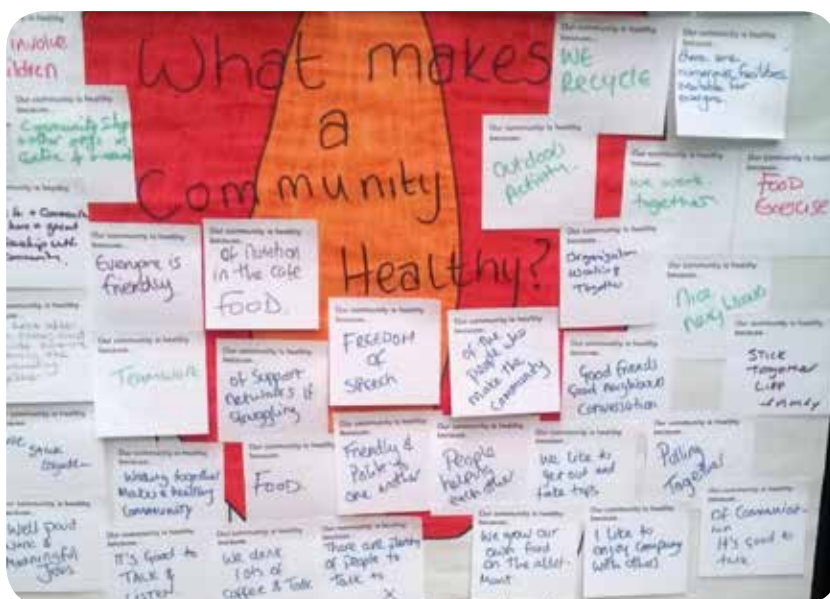 What makes
a
Community
Healthy?
involve
Our community is healthy
because...
WE
RECYCLE
Our community is healthy
because...
there are
numerous facilities
available for
Our community is healthy
because...
Community Shop
Our community is healthy
because...
OUTDOOR
Activity.
Our community is healthy
because...
we work
together
Our community is healthy
because...
FOOD
Exercise
Our community is healthy
because...
Everyone is
friendly
Our community is healthy
because...
of nutrition
in the cafe
FOOD.
Our community is healthy
because...
Working
Together
Our community is healthy
because...
Nice
Neighbours
Our community is healthy
because...
Teamwork
Our community is healthy
because...
of Support
networks if
struggling
Our community is healthy
because...
FREEDOM
OF
SPEECH
Our community is healthy
because...
of the
people who
make the
community
Our community is healthy
because...
Good friends
Good neighbours
Conversation
Our community is healthy
because...
STICK
Together
Our community is healthy
because...
Working together
Makes a healthy
Community
Our community is healthy
because...
FOOD.
Our community is healthy
because...
Friendly &
Polite to
one another
Our community is healthy
because...
People
helping
each other
Our community is healthy
because...
we like to
get out and
Our community is healthy
because...
Pulling
Together
Stick
Well paid
work &
Meaningful
jobs
Our community is healthy
because...
IT'S Good to
TALK &
LISTEN
Our community is healthy
because...
lots of
coffee & Talk
Our community is healthy
because...
There are plenty
of people to
Talk to
x
Our community is healthy
because...
We grow our
own food
on The allot-
ment
Our community is healthy
because...
I like to
enjoy company
with others
Our community is healthy
because...
It's good to
talk